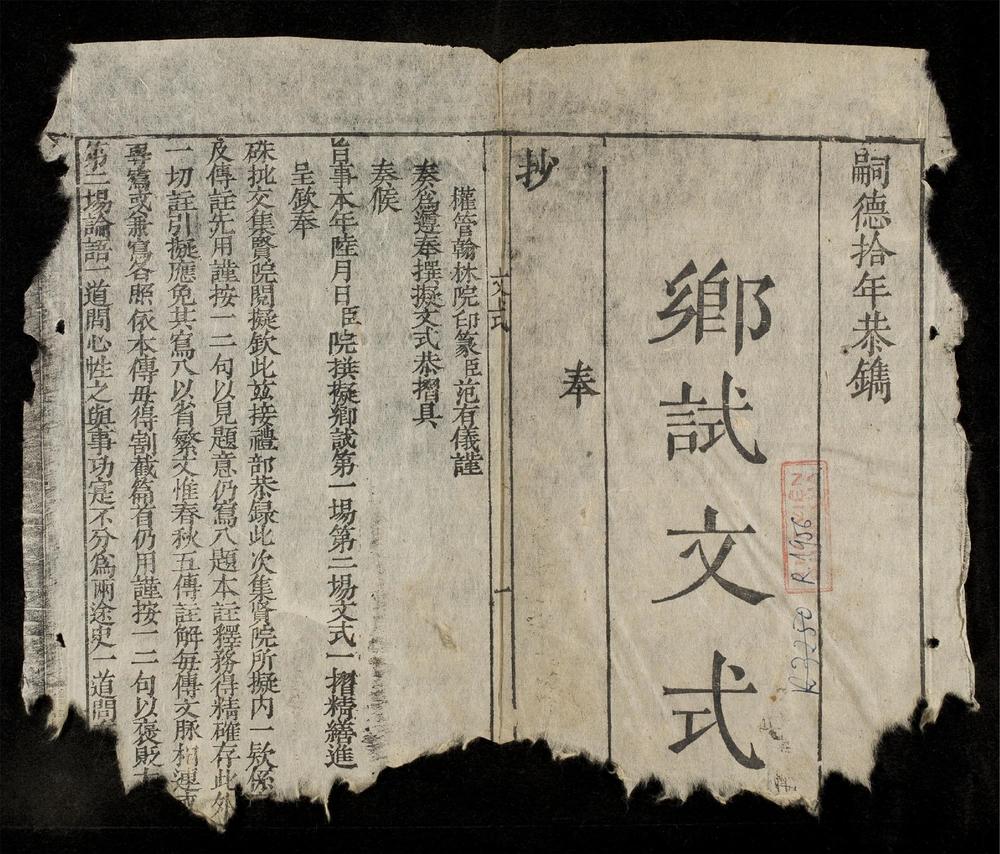 嗣德拾年恭鐫
鄉試文式
奉
抄
文式
一
權管翰林院印篆臣范有儀謹
奏爲遵奉撰擬文式恭摺具
奏候
旨事本年陸月日臣院撰擬鄉試第一場第二場文式一摺精繕進
呈欽奉
硃批交集賢院閱擬欽此玆接禮部恭録此次集賢院所擬内一欵係
及傳註先用謹按一二句以見題意仍寫入題本註釋務得精確存此外
一切註引擬應免其寫入以省繁文惟春秋五傳註解每傳文脉相連或
專寫或兼寫各照依本傳毋得割截篇首仍用謹按一二句以褒貶
第二場論語一道問心性之與事功寔不分爲兩途史一道問
R.1956
R.2250